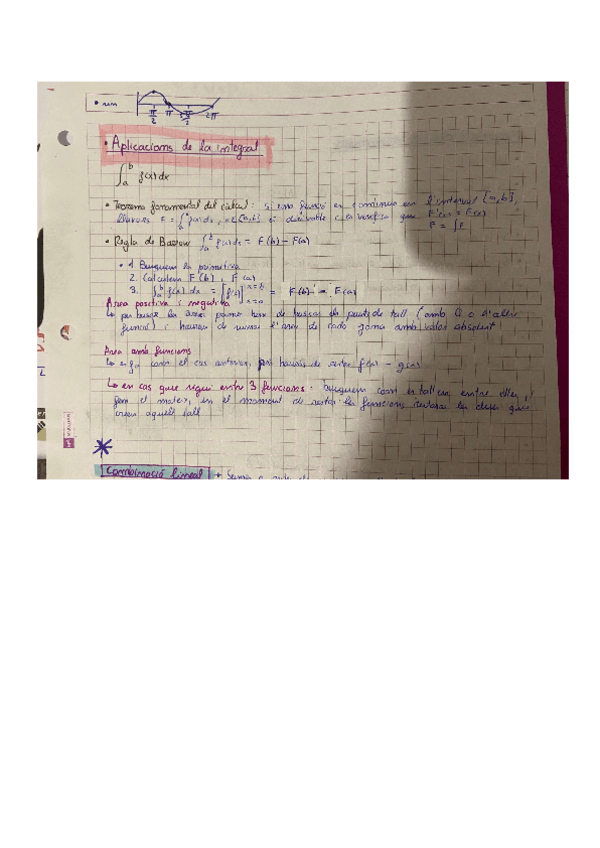 • sin π/2 π 3π/2 2π
• Aplicacions de la integral
∫ₐᵇ f(x) dx
• Teorema fonamental del càlcul: si una funció és contínua en l'interval [a,b],
llavors F = ∫ f(x) dx, x ∈ [a,b] és derivable i es verifica que F'(x) = f(x)
F = ∫f
• Regla de Barrow ∫ₐᵇ f(x) dx = F(b) - F(a)
• 1. Busquem la primitiva
2. Calculem F(b) i F(a)
3. ∫ₐᵇ f(x) dx = [F(x)] x=b x=a = F(b) - F(a)
Àrea positiva i negativa
↳ per buscar la àrea primer hem de buscar els punts de tall (amb 0 o l'altre
funció) i haurem de sumar l'àrea de cada zona amb valor absolut
Àrea amb funcions
↳ es fa com el cas anterior, però hauríem de restar f(x) - g(x)
↳ en cas que sigui entre 3 funcions. busquem com es tallen entre elles, i
fem el mateix, en el moment de restar les funcions restarem les dues que
creen aquell tall
Combinació lineal →